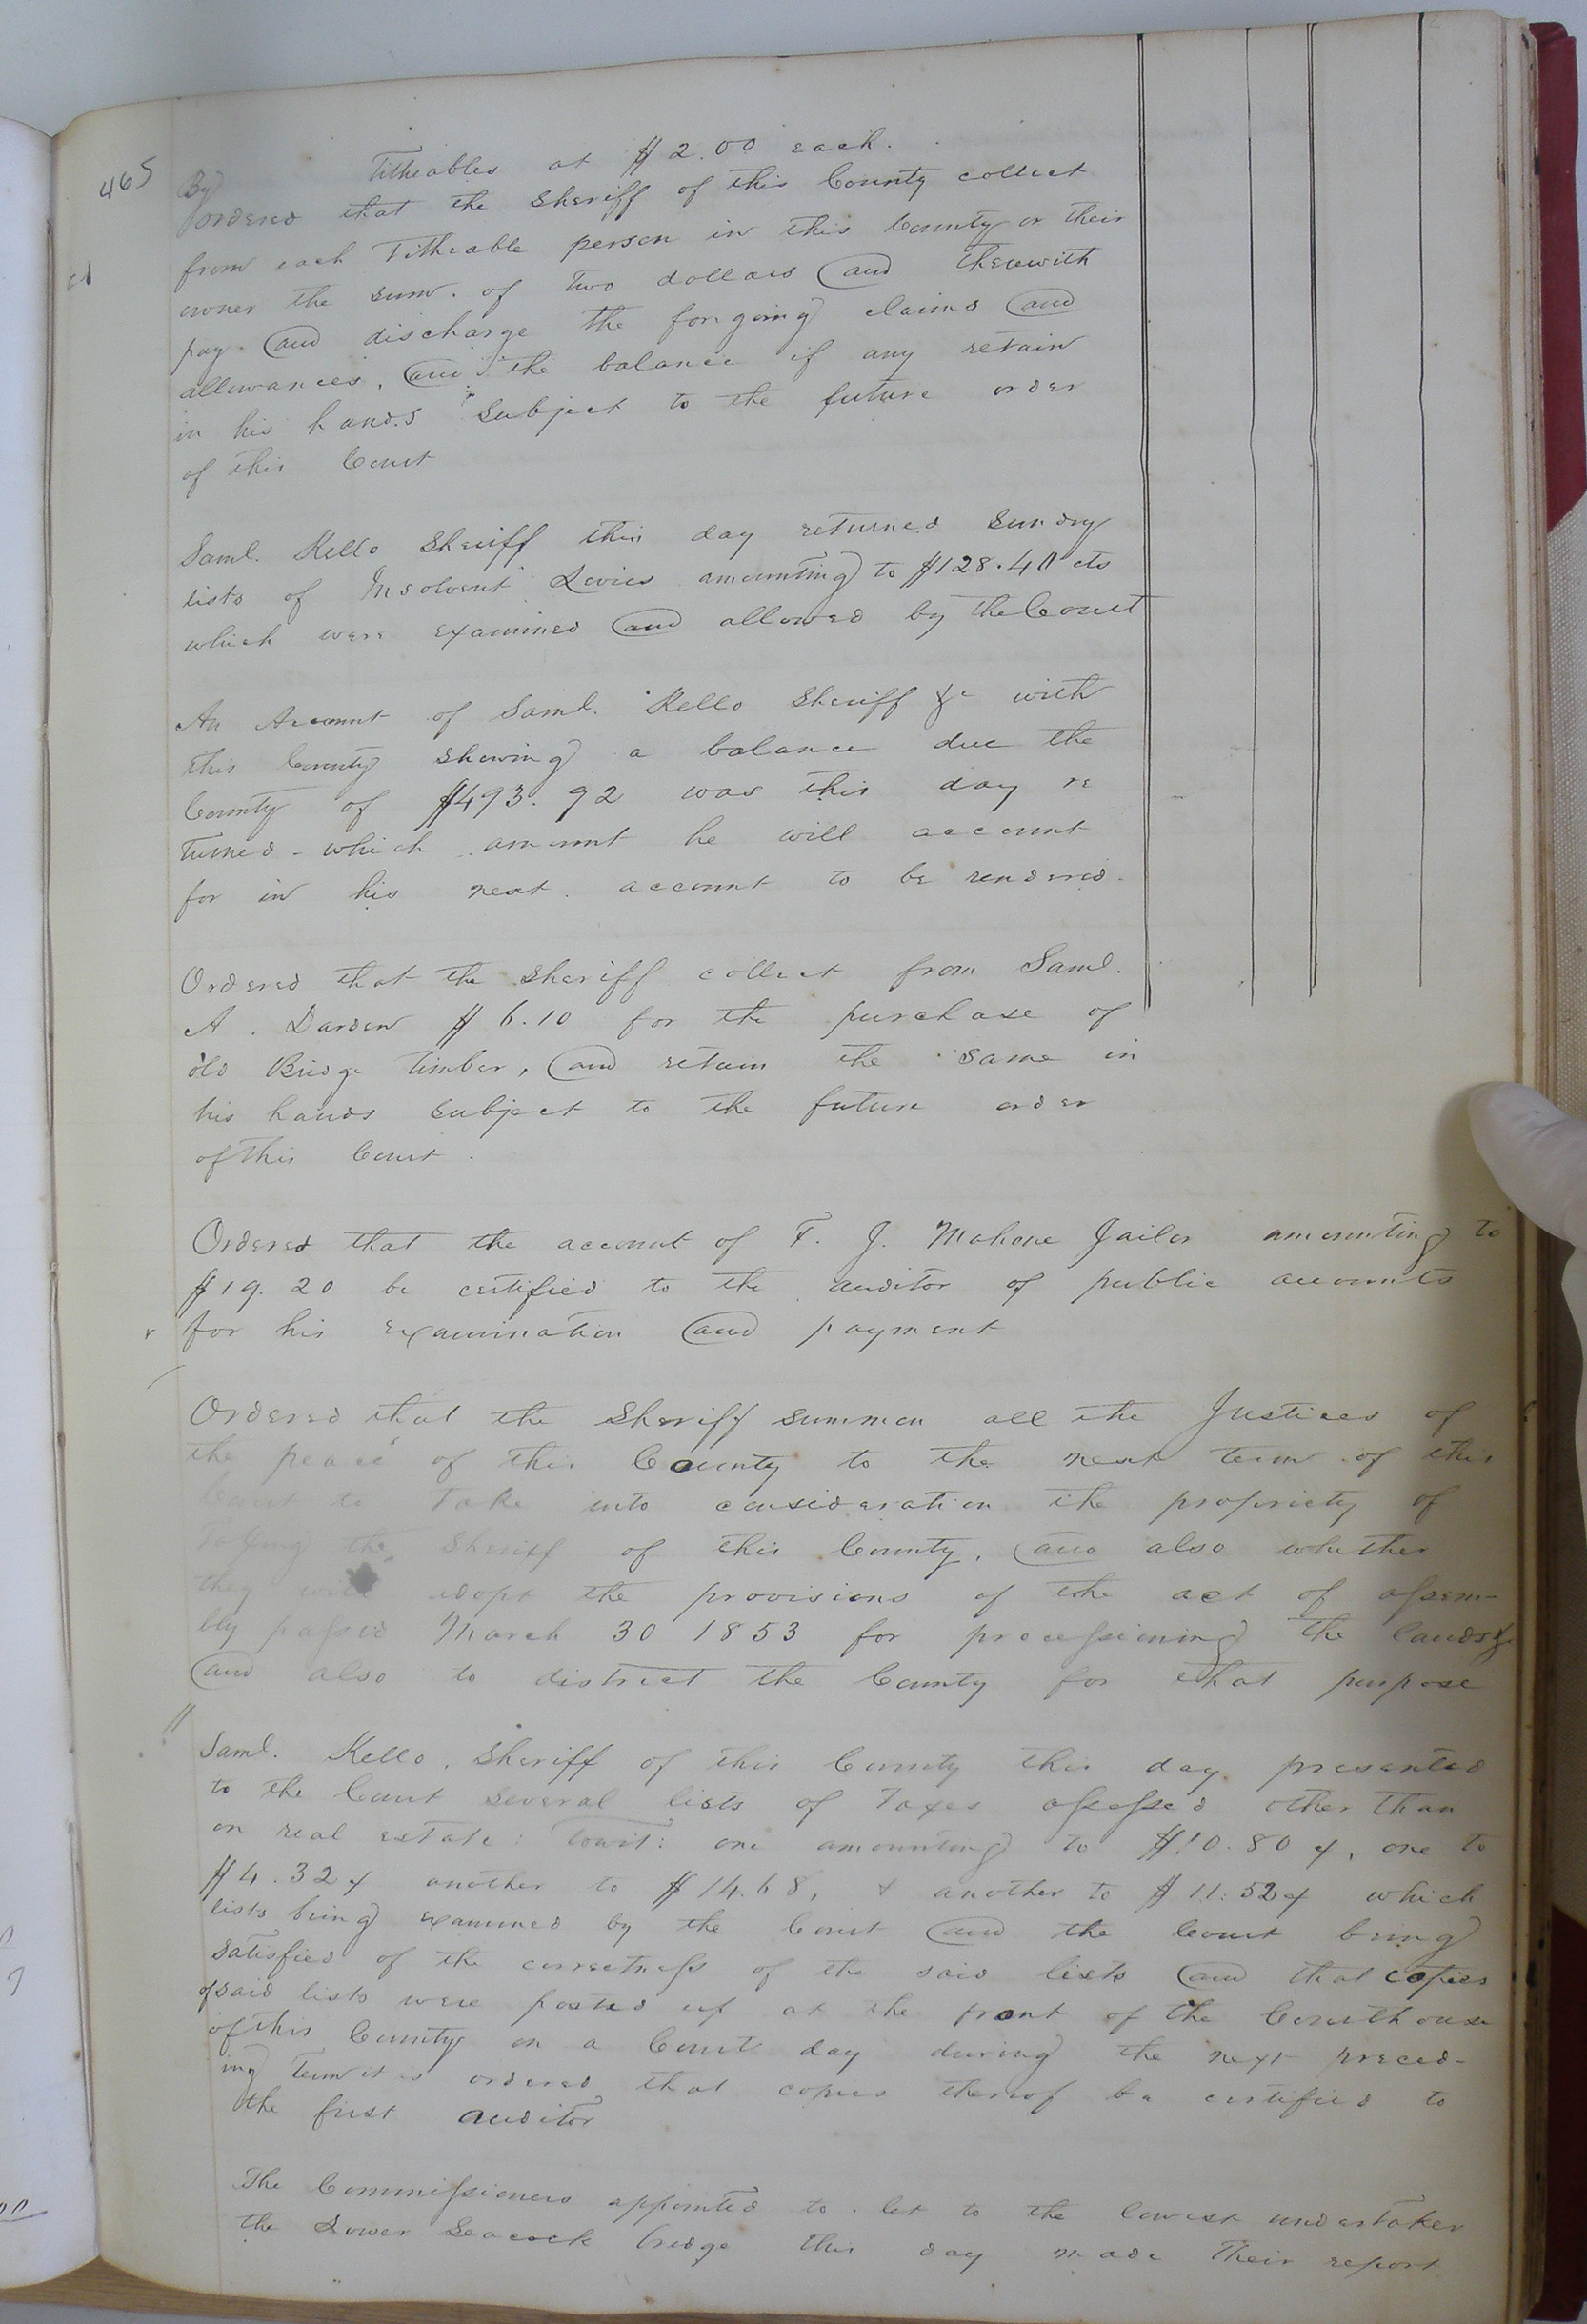 465
By Titheables at $2.00 each.
ordered that the Sheriff of this County collect
from each Titheable person in this County or their
owner the sum. of two dollars and therewith
pay and discharge the forgoing claims and
allowances, and the balance if any retain
in his hands subject to the future order
of this Court
Saml. Kello Sheriff this day returned sundry
lists of Insolvent Levies amounting to $128.40 cts
which were examined and allowed by the Court
An Account of Saml. Kello Sheriff &c with
this County shewing a balance due the
County of $493.92 was this day re
turned - which amount he will account
for in his next account to be rendered.
Ordered that the Sheriff collect from Saml.
A. Darden $6.10 for the purchase of
old Bridge timber, and retain the same in
his hands subject to the future order
of this Court.
Ordered that the account of T. J. Mahone Jailor amounting to
$19.20 be certified to the auditor of public accounts
for his examination and payment
Ordered that the Sheriff summon all the Justices of
the peace of this County to the next term of this
Court to Take into consideration the propriety of
the Sheriff of this County, and also whether
they will adopt the provisions of the act of assem-
bly passed March 30 1853 for processioning the lands &
and also to district the County for that purpose
Saml. Kello, Sheriff of this County this day presented
to the Court several lists of Taxes assessed other than
on real estate: Towit: one amounting to $10.80 , one to
$4.32 another to $14.68, & another to $11.52 which
lists being examined by the Court and the Court being
satisfied of the correctness of the said lists and that copies
of said lists were posted up at the front of the Courthouse
of this County on a Court day during the next preced-
ing Term it is ordered that copies thereof be certified to
the first auditor
The Commissioners appointed to let to the lowest undertaker
the Lower Seacock bridge this day made Their report